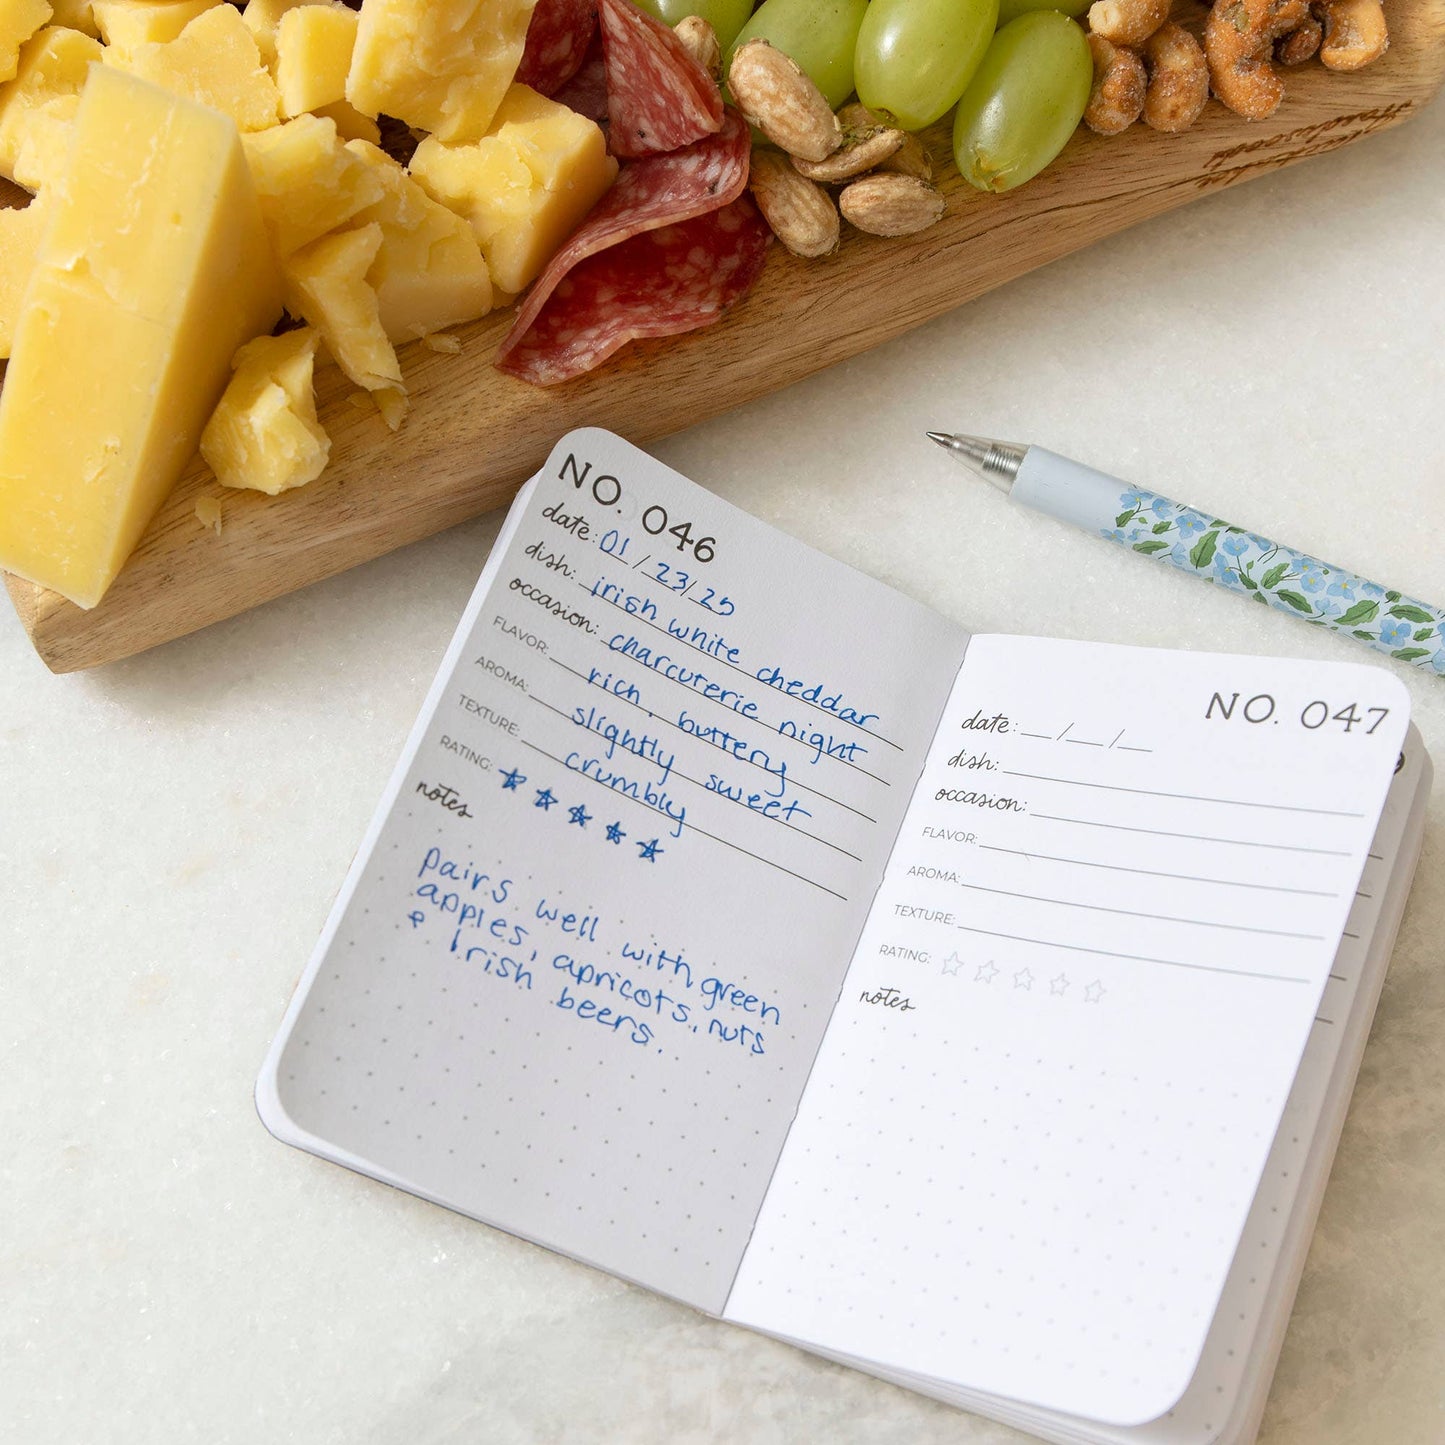 NO. 046
date: 01 / 23 / 25
dish: irish white cheddar
occasion: charcuterie night
FLAVOR: rich, buttery
AROMA: slightly sweet
TEXTURE: crumbly
RATING:
notes
pairs well with green
apples, apricots, nuts
& Irish beers.
NO. 047
date: __/__/__
dish:
occasion:
FLAVOR:
AROMA:
TEXTURE:
RATING:
notes